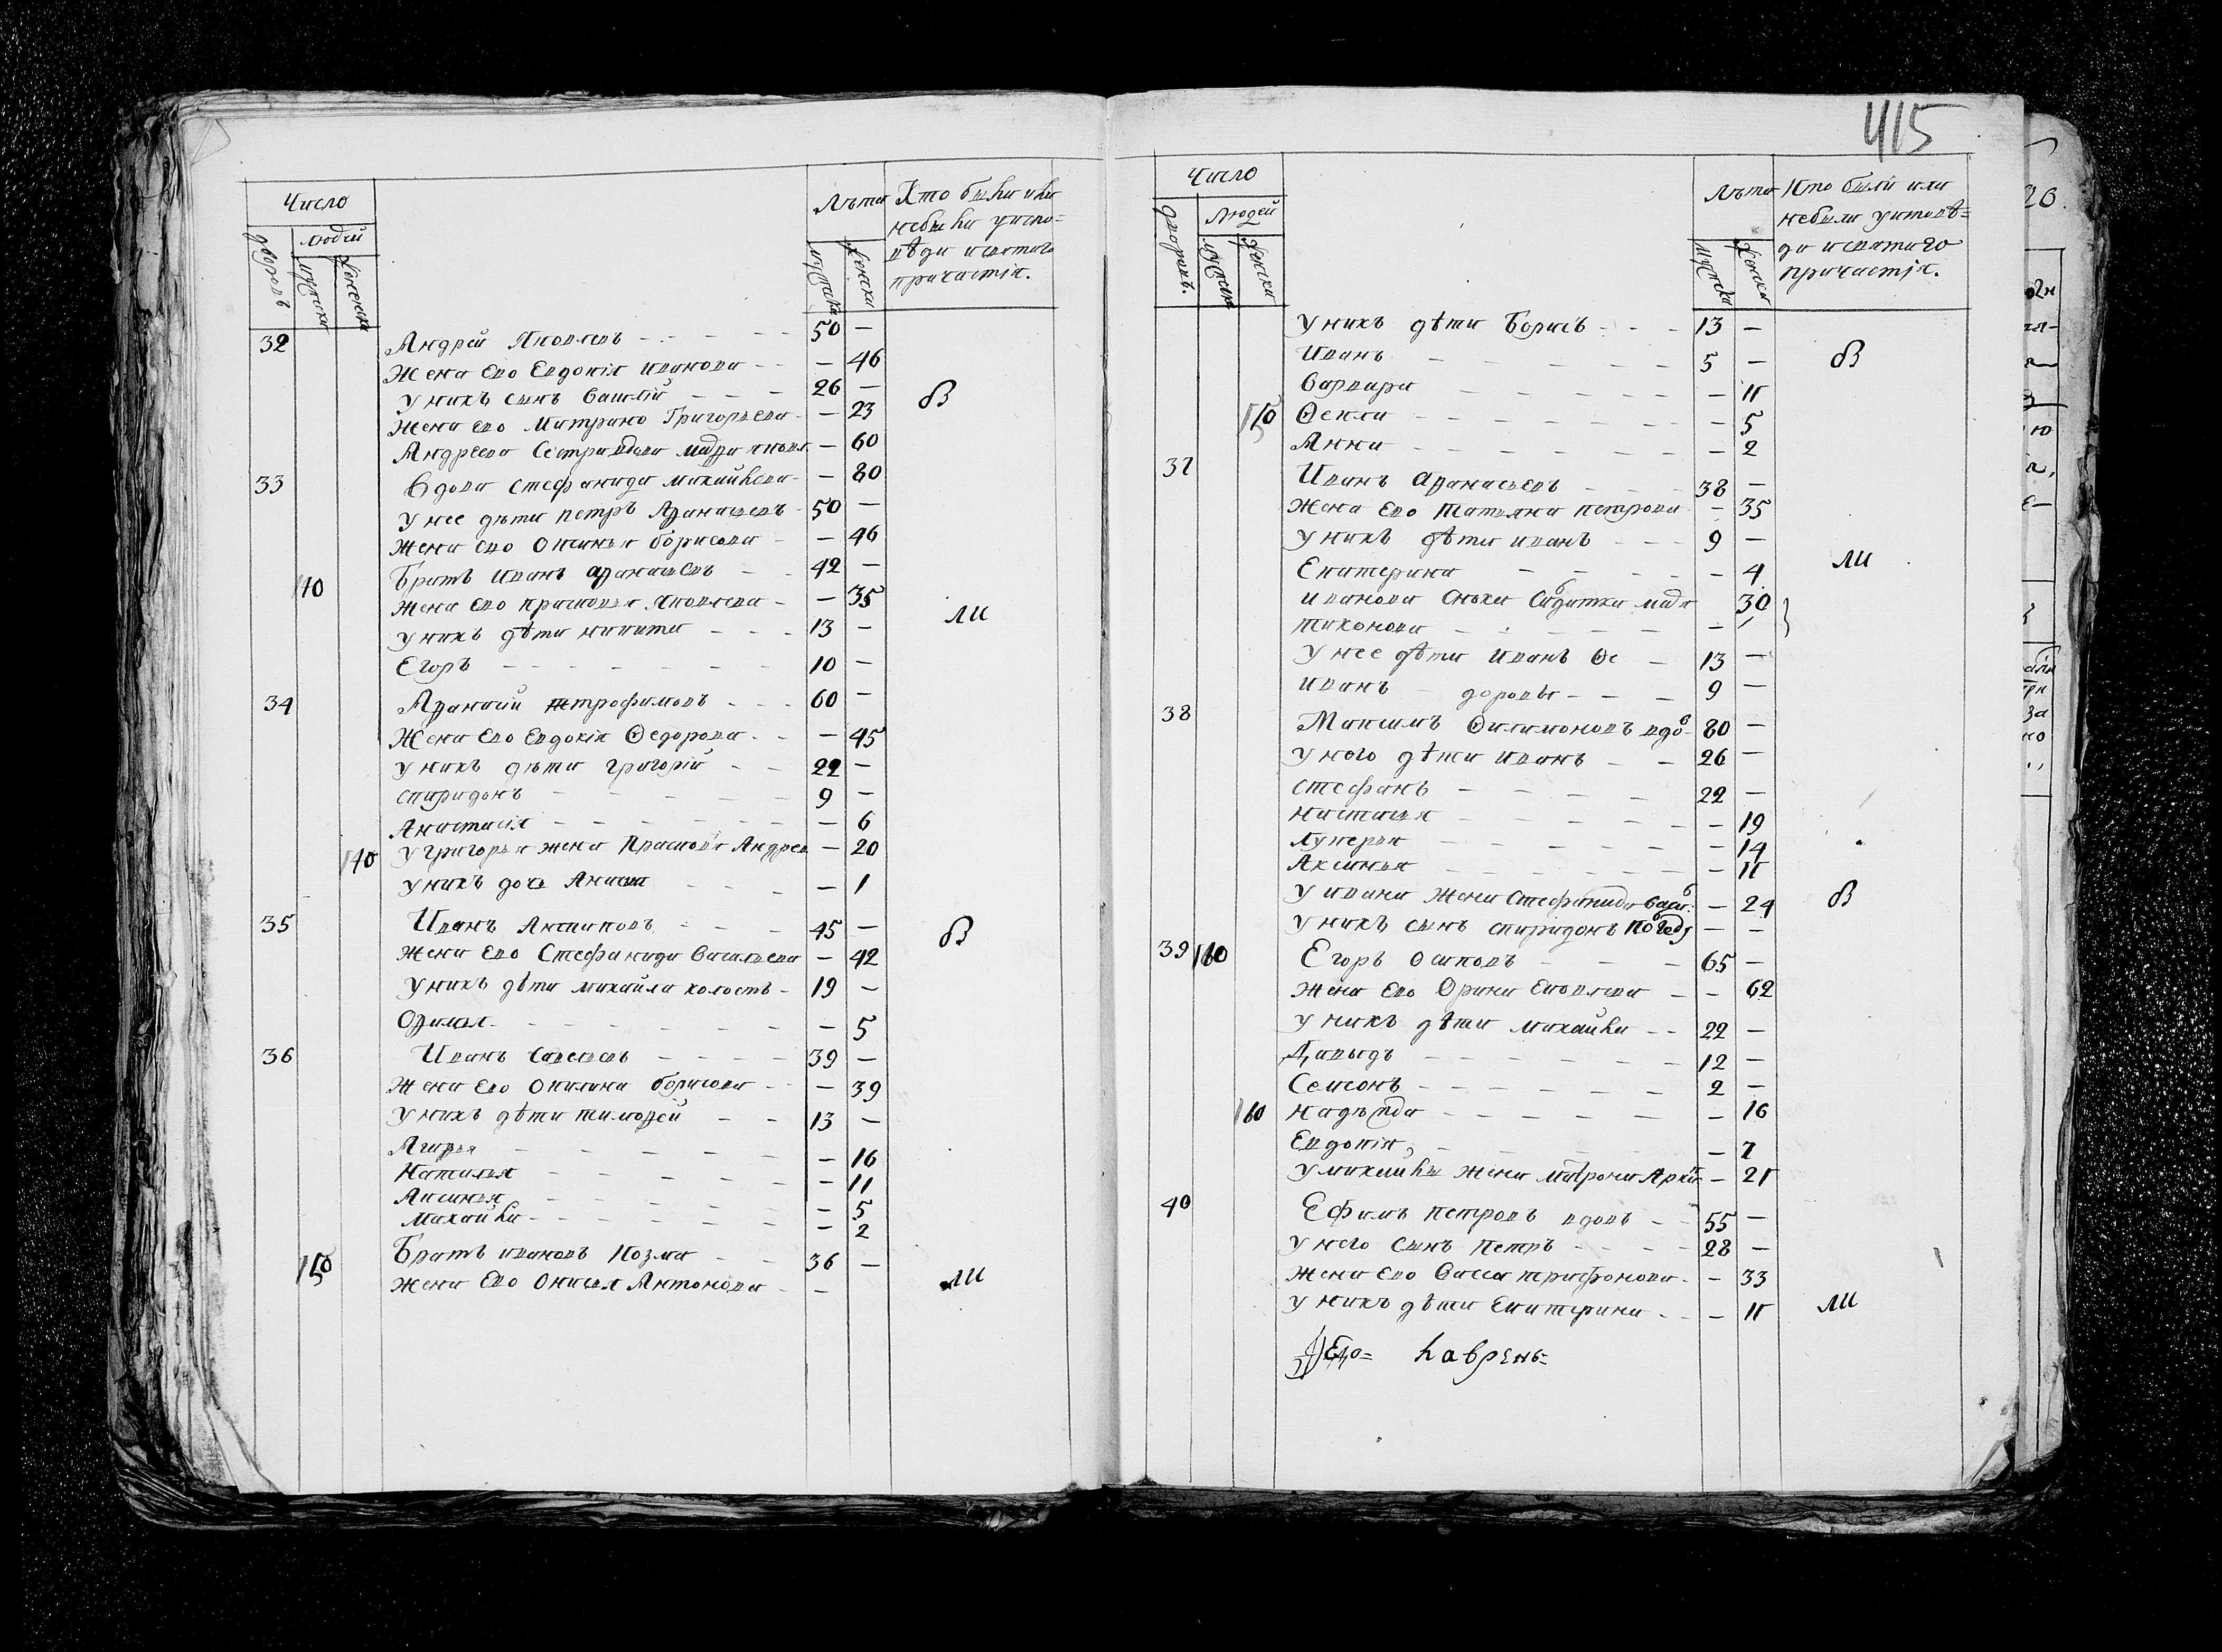 Число
людей
дворовъ
мужска
женска
Лѣта
мужска
женски
Кто были или
небыли уиспо=
вѣди исвятаго
причастія.
32 Андрей Яковлевъ - - - - 50 —
Жена ево Евдокія иванова - - — 46
у нихъ сынъ василій - - - 26 —
Жена ево Матрина Григорьева - — 23
в
Андреева Сестра вдова — 60
33 Вдова стефанида михайлова - — 80
у нее дѣти петръ Афанасьевъ - 50 —
Жена ево Оксинья борисова - — 46
Братъ Иванъ афанасьевъ - - 42 —
110 Жена ево прасковья Яковлева - — 35
ли
у нихъ дѣти никита - - - 13 —
Егоръ - - - - - - - 10 —
34 Афанасій трофимовъ - - - 60 —
Жена ево Евдокія Ѳедорова - - — 45
у нихъ дѣти григорій - - 22 —
спиридонъ - - - - - 9 —
Анастасія - - - - - - — 6
140 у григорья жена Прасковья Андрев — 20
у нихъ дочь Анисья - - - - — 1
35 Иванъ Антиповъ - - - 45 —
в
Жена ево Стефанида васильева — 42
у нихъ дѣти михайла холостъ - 19 —
Офимья - - - - - - - — 5
36 Иванъ савельевъ - - - - 39 —
Жена ево Окилина борисова - - — 39
у нихъ дѣти тимофей - - 13 —
Агафья - - - - - — 16
Наталья - - - - - — 11
Аксинья - - - - - — 5
Михайла - - - - - - — 2
150 Братъ ивановъ Козма - - 36 —
Жена Ево Онисья Антонова - —
ли
415
Число
Людей
дворовъ.
мужска
женски
Лѣта
мужска
женска
Кто были или
небыли уисповѣ=
ди исвятаго
причастія.
у нихъ дѣти Борисъ - - - 13 —
Иванъ - - - - - 5 —
в
варвара - - - - - — 11
150 Ѳекла - - - - - - — 5
Анна - - - - - - — 2
37 Иванъ афанасьевъ - - - 38 —
Жена Ево татьяна петрова - — 35
у нихъ дѣти иванъ - - - 9 —
Екатерина - - - - - — 4
ли
иванова сноха Салдатка 30
тихонова - - - - - —
у нее дѣти Иванъ Ѳе - 13 —
иванъ - доровъ - - - 9 —
38 Максимъ Филимоновъ вдов 80 —
у него дѣти иванъ - - 26 —
стефанъ - - - - 22 —
настасья - - - - - — 19
Лукерья - - - - - — 14
Аксинья - - - - - - — 11
у ивана жена Стефанида васи: — 24
в
у нихъ сынъ спиридонъ — —
39 160 Егоръ Осиповъ - - - 65 —
Жена ево Орина Ековлева - — 62
у нихъ дѣти михайла - - 22 —
Давыдъ - - - - - - 12 —
Семіонъ - - - - - - 2 —
160 надежда - - - - - — 16
Евдокія, - - - - - — 7
у михайлы жена матрона Архи — 21
40 Ефимъ петровъ вдовъ - - 55 —
у него сынъ петръ - - - - 28 —
Жена ево васса трифонова - — 33
у нихъ дѣти Екатерина - - — 11
ли
лаврень=